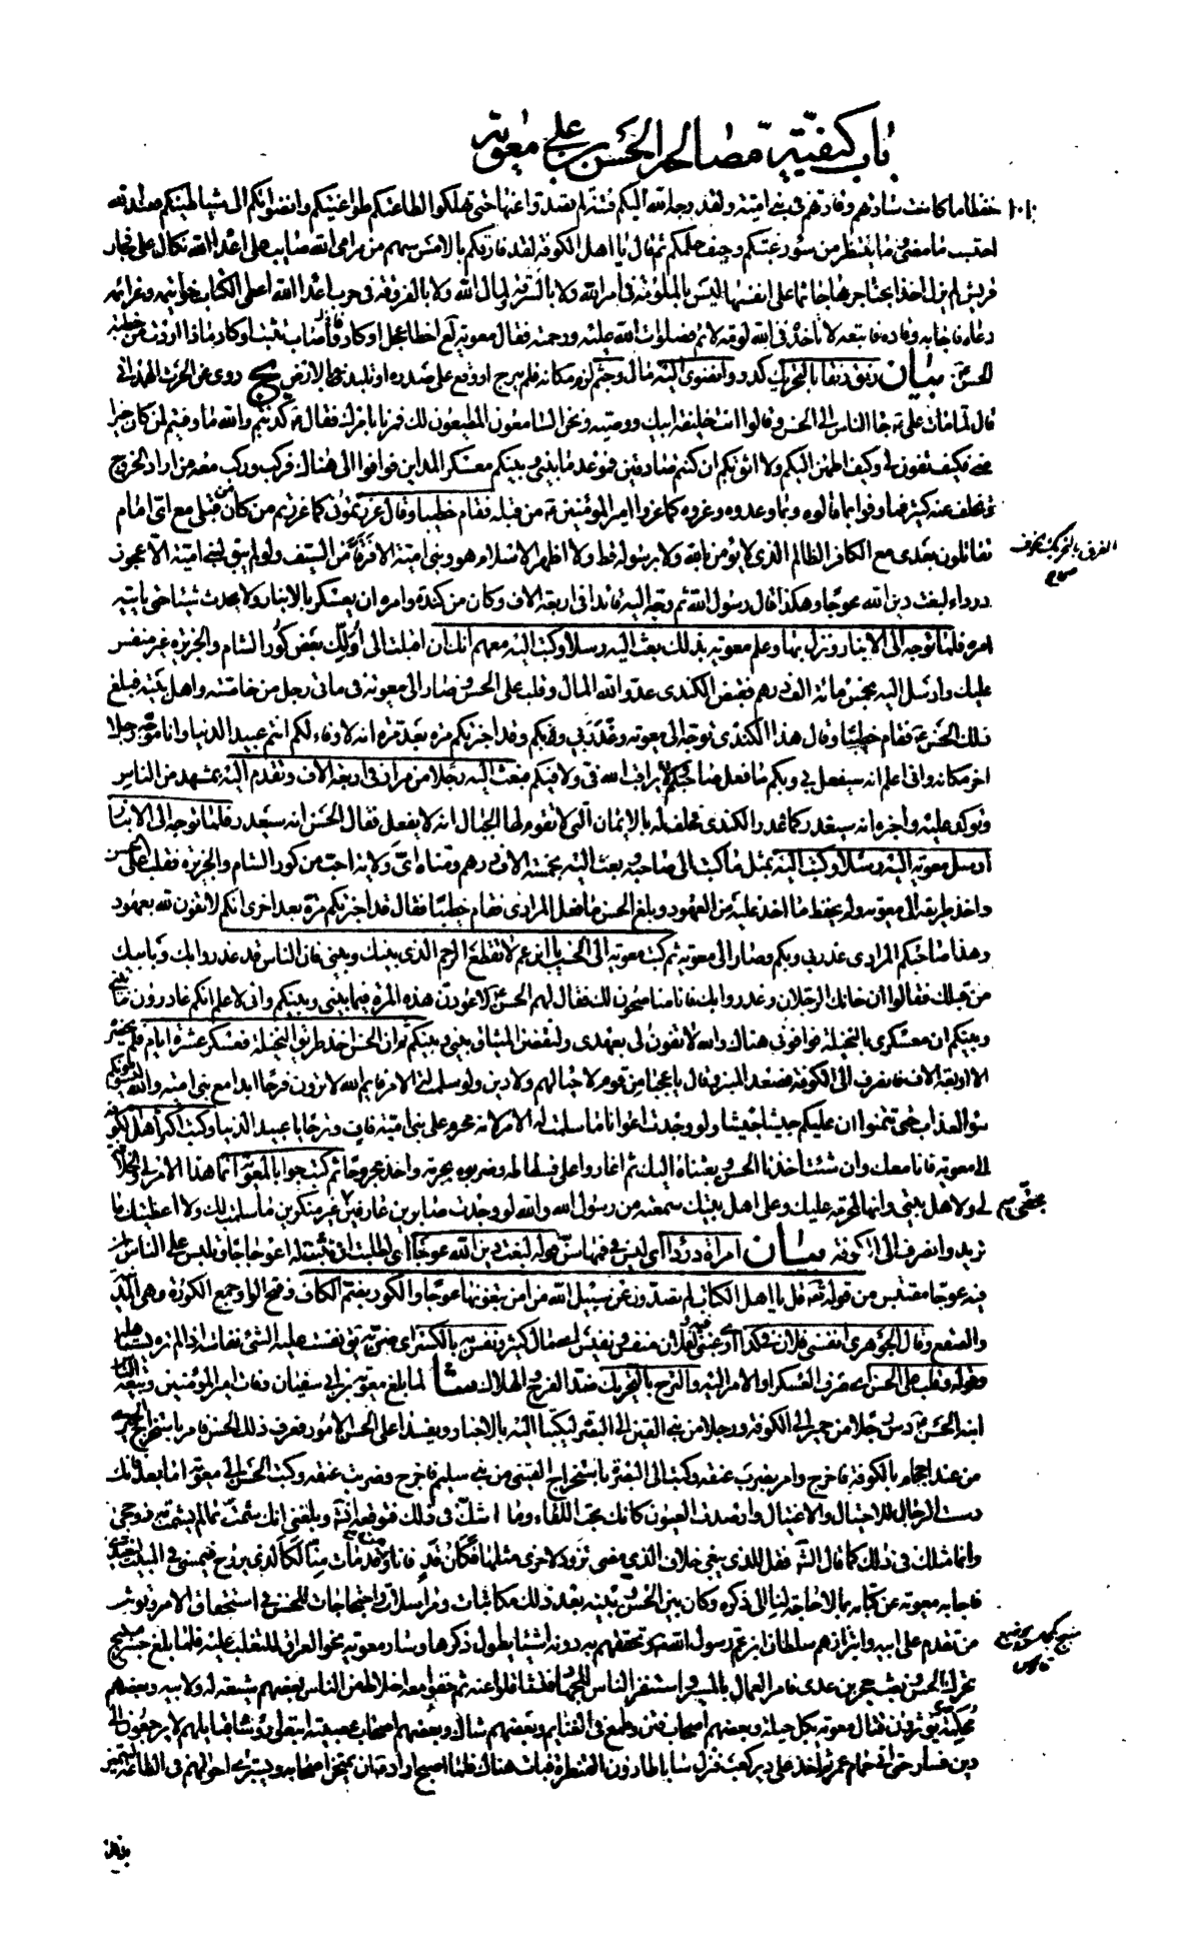 باب كيفيّة مصالحة الحسن بن على معوية
احتسب ما مضى وما ينتظر من سوء رغبتكم وحيف حلمكم ثم قال يا اهل الكوفة لقد فارقكم بالامس سهم من مرامى الله صايب على اعداء الله نكال على فجار
قريش لم يزل اخذا بحناجرها جاثما على انفسها ليس بالملومة فى امر الله ولا بالسروقة لمال الله ولا بالفروقة فى حرب اعداء الله اعطى الكتاب خواتيمه وعزائمه
دعاه فاجابه وقاده فاتبعه لا تاخذه فى الله لومة لائم فصلوات الله عليه ورحمته فقال معوية اخطأ عجل او كاد واصاب مثبت او كاد ماذا اردت من خطبة
الحسن بيان رنق رنقا بالتحريك كدر وانضوى اليه مال وجثم لزم مكانه فلم يبرح او وقع على صدره او تلبد بالارض يج روى عن الحرث الهمدانى
قال لما مات على جاء الناس الى الحسن وقالوا انت خليفة ابيك ووصيه ونحن السامعون المطيعون لك فمرنا بامرك فقال كذبتم والله ما وفيتم لمن كان خيرا
منى فكيف تفون لى وكيف اطمئن اليكم ولا اثق بكم ان كنتم صادقين فموعد ما بينى وبينكم معسكر المداين فوافوا الى هناك فركب وركب معه من اراد الخروج
وتخلف عنه كثير فما وفوا بما قالوه وبما وعدوه وغروه كما غروا امير المؤمنين من قبله فقام خطيبا وقال غررتمونى كما غررتم من كان من قبلى مع اى امام
تقاتلون بعدى مع الكافر الظالم الذى لا يؤمن بالله ولا برسوله قط ولا اظهر الاسلام هو وبنى امية الا فرقا من السيف ولو لم يبق لبنى امية الا عجوز
درداء لبغت دين الله عوجا وهكذا قال رسول الله ثم وجه اليه قائدا فى اربعة الاف وكان من كندة وامره ان يعسكر بالانبار ولا يحدث شيئا حتى ياتيه
امره فلما توجه الى الانبار ونزل بها وعلم معوية بذلك بعث اليه رسلا وكتب اليه معهم انك ان اقبلت الى اولك بعض كور الشام والجزيرة غير منفس
عليك وارسل اليه بخمس مائة الف درهم فقبض الكندى عدو الله المال وقلب على الحسن وصار الى معوية فى مائتى رجل من خاصته واهل بيته فبلغ
ذلك الحسن فقام خطيبا وقال هذا الكندى توجه الى معوية وغدر بى وبكم وقد اخبرتكم مرة بعد مرة انه لا وفاء لكم انتم عبيد الدنيا وانا موجه رجلا
اخر مكانه وانى اعلم انه سيفعل بى وبكم ما فعل صاحبكم لا يراقب الله فى ولا فيكم فبعث اليه رجلا من مراد فى اربعة الاف وتقدم اليه بمشهد من الناس
وتوكد عليه واخبره انه سيغدر كما غدر الكندى فحلف له بالايمان التى لا تقوم لها الجبال انه لا يفعل فقال الحسن انه سيغدر فلما توجه الى الانبار
ارسل معوية اليه رسلا وكتب اليه بمثل ما كتب الى صاحبه وبعث اليه بخمسة الاف درهم ومناه اى ولاية احب من كور الشام والجزيرة فقلب على الحسن
واخذ طريقه الى معوية ولم يحفظ ما اخذ عليه من العهود وبلغ الحسن ما فعل المرادى فقام خطيبا فقال قد اخبرتكم مرة بعد اخرى انكم لا تفون لله بعهود
وهذا صاحبكم المرادى غدر بى وبكم وصار الى معوية ثم كتب معوية الى الحسن يا ابن عم لا تقطع الرحم الذى بينك وبينى فان الناس قد غدروا بك وبابيك
من قبلك فقالوا ان خانك الرجلان وغدروا بك فانا مناصحون لك فقال لهم الحسن لاعودن هذه المرة فيما بينى وبينكم وانى لاعلم انكم غادرون ما بينى
وبينكم ان معسكرى بالنخيلة فوافونى هناك والله لا تفون لى بعهدى ولتنقضن الميثاق بينى وبينكم ثم ان الحسن اخذ طريق النخيلة فعسكر عشرة ايام فلم يحضره
الا اربعة الاف فانصرف الى الكوفة فصعد المنبر وقال يا عجبا من قوم لا حياء لهم ولا دين ولو سلمت له الامر فايم الله لا ترون فرجا ابدا مع بنى امية والله ليسومونكم
سوء العذاب حتى تتمنوا ان عليكم جيشا جيشا ولو وجدت اعوانا ما سلمت له الامر لانه محرم على بنى امية فاف وترحا يا عبيد الدنيا وكتب اكثر اهل الكوفة
الى معوية فانا معك وان شئت اخذنا الحسن وبعثناه اليك ثم اغاروا على فسطاطه وضربوه بحربة واخذ مجروحا ثم كتب جوابا لمعوية انما هذا الامر لى والخلافة
لى ولاهل بيتى وانها لمحرمة عليك وعلى اهل بيتك سمعته من رسول الله والله لو وجدت صابرين عارفين بحقى غير منكرين ما سلمت لك ولا اعطيتك ما
تريد وانصرف الى الكوفة بيان امراة درداء اى ليس فى فمها سن قوله لبغت دين الله عوجا اى لطلبت
فيه عوجا مقتبس من قوله تعالى قل يا اهل الكتاب لم تصدون عن سبيل الله من امن تبغونها عوجا والكور بضم الكاف وفتح الواو جمع الكورة وهى المدينة
والصقع وقال الجوهرى انفسنى فلان فى كذا
وقوله وقلب على الحسن اى صرف العسكر او الامر اليه والترح بالتحريك ضد الفرح والهلاك شا لما بلغ معوية بن ابى سفيان وفات امير المؤمنين وبيعة الناس
ابنه الحسن دس رجلا من حمير الى الكوفة ورجلا من بنى القين الى البصرة ليكتبا اليه بالاخبار ويفسدا على الحسن الامور فعرف ذلك الحسن فامر باستخراج الحميرى
من عند لحام بالكوفة فاخرج وامر بضرب عنقه وكتب الى البصرة باستخراج القينى من بنى سليم فاخرج وضربت عنقه وكتب الحسن الى معوية اما بعد فانك
دسست الرجال للاحتيال والاغتيال وارصدت العيون كانك تحب اللقاء وما اشك فى ذلك فتوقعه انشاء الله وبلغنى انك شمت بما لم يشمت به ذو حجى
وانما مثلك فى ذلك كما قال الاول فقل للذى يبغى خلاف الذى مضى تزود لاخرى مثلها فكان قد فانا ومن قد مات منا لكالذى يروح فيمسى فى المبيت ليغتدى
فاجابه معوية عن كتابه بما لا حاجة لنا الى ذكره وكان بين الحسن وبينه بعد ذلك مكاتبات ومراسلات واحتجاجات للحسن فى استحقاقه الامر وتوثب
من تقدم على ابيه وابتزازهم سلطان ابن عم رسول الله وتحققهم به دونه اشياء يطول ذكرها وسار معوية نحو العراق ليغلب عليه فلما بلغ جسر منبج
تحرك الحسن وبعث حجر بن عدى فامر العمال بالمسير واستنفر الناس للجهاد فتثاقلوا عنه ثم خفوا معه اخلاط من الناس بعضهم شيعة له ولابيه وبعضهم
محكمة يؤثرون قتال معوية بكل حيلة وبعضهم اصحاب فتن وطمع فى الغنايم وبعضهم شكاك وبعضهم اصحاب عصبية اتبعوا رؤساء قبايلهم لا يرجعون الى
دين فسار حتى اتى حمام عمر ثم اخذ على دير كعب فنزل ساباط دون القنطرة وبات هناك فلما اصبح اراد ان يمتحن اصحابه ويستبرئ احوالهم فى الطاعة ليتميز